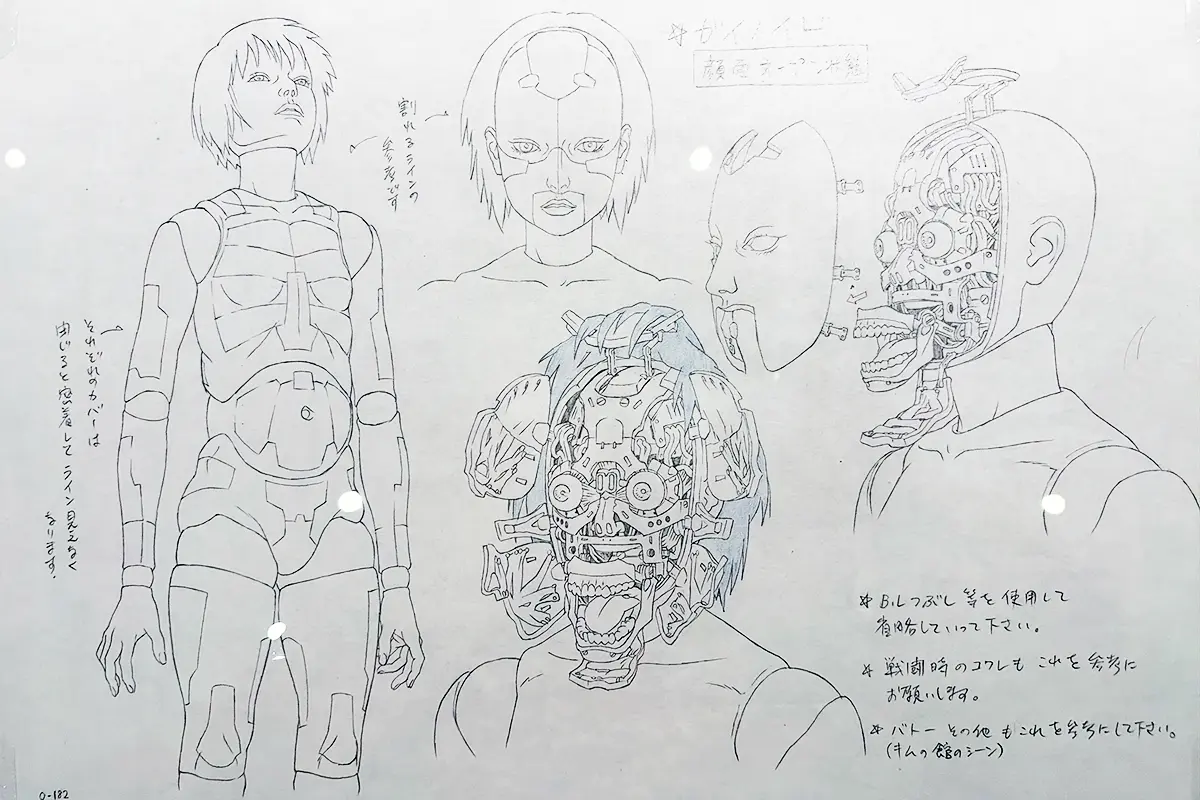 ※ガイノイド
顔面オープン状態
割れるラインの
参考です
それぞれのカバーは
閉じると密着してライン見えなく
なります。
※ B.Lつぶし等を使用して
省略していって下さい。
※ 戦闘時のコワレも これを参考に
お願いします。
※ バトー その他 もこれを参考にして下さい。
(キムの館のシーン)
0-182